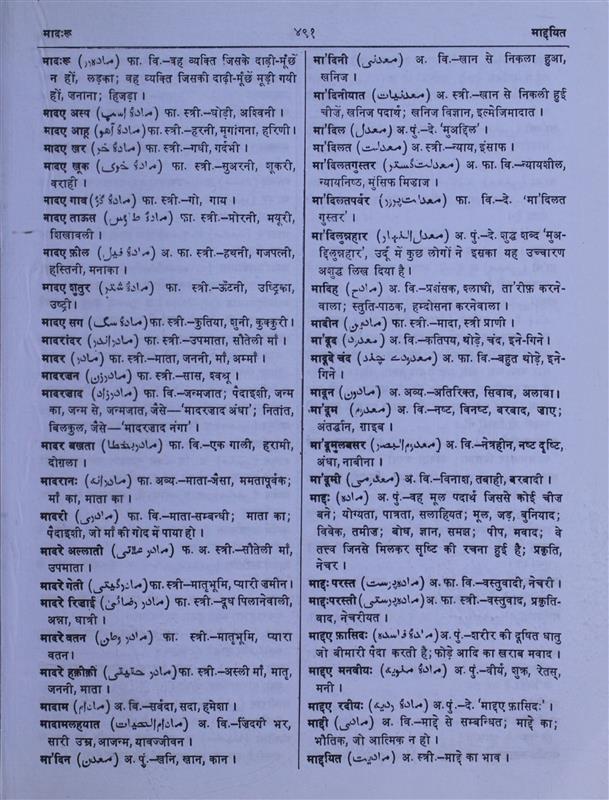 मादःरू
४९१
माद्दयित
मादःरू (مادہرو) फा. वि.–वह व्यक्ति जिसके दाढ़ी-मूँछें
न हों, लड़का; वह व्यक्ति जिसकी दाढ़ी-मूँछें मूड़ी गयी
हों, जनाना; हिजड़ा।
मादए अस्प (مادۂ اسپ) फा. स्त्री.–घोड़ी, अश्विनी।
मादए आहू (مادۂ آهو) फा. स्त्री.–हरनी, मृगांगना, हरिणी।
मादए खर (مادۂ خر) फा. स्त्री.–गधी, गर्दभी।
मादए खूक (مادۂ خوک) फा. स्त्री.–सुअरनी, शूकरी,
वराही।
मादए गाव (مادۂ گاؤ) फा. स्त्री.–गो, गाय।
मादए ताऊस (مادۂ طاؤس) फा. स्त्री.–मोरनी, मयूरी,
शिखावली।
मादए फ़ील (مادۂ فیل) अ. फा. स्त्री.–हथनी, गजपत्नी,
हस्तिनी, मनाका।
मादए शुतुर (مادۂ شتر) फा. स्त्री.–ऊँटनी, उष्ट्रिका,
उष्ट्री।
मादए सग (مادۂ سگ) फा. स्त्री.–कुतिया, शुनी, कुक्कुरी।
मादरांदर (مادراندر) फा. स्त्री.–उपमाता, सौतेली माँ।
मादर (مادر) फा. स्त्री.–माता, जननी, माँ, अम्माँ।
मादरज़न (مادرزن) फा. स्त्री.–सास, श्वश्रू।
मादरज़ाद (مادرزاد) फा. वि.–जन्मजात; पैदाइशी, जन्म
का, जन्म से, जन्मजात, जैसे—'मादरज़ाद अंधा'; नितांत,
बिलकुल, जैसे—'मादरज़ाद नंगा'।
मादर बख़ता (مادربخطا) फा. वि.–एक गाली, हरामी,
दोग़ला।
मादरानः (مادرانه) फा. अव्य.–माता-जैसा, ममतापूर्वक;
माँ का, माता का।
मादरी (مادری) फा. वि.–माता-सम्बन्धी; माता का;
पैदाइशी, जो माँ की गोद में पाया हो।
मादरे अल्लाती (مادر علاتی) फ. अ. स्त्री.–सौतेली माँ,
उपमाता।
मादरे गेती (مادرگیتی) फा. स्त्री.–मातृभूमि, प्यारी ज़मीन।
मादरे रिज़ाई (مادر رضائی) फा. स्त्री.–दूध पिलानेवाली,
अन्ना, धात्री।
मादरे वतन (مادر وطن) फा. स्त्री.–मातृभूमि, प्यारा
वतन।
मादरे हक़ीक़ी (مادر حقیقی) फा. स्त्री.–अस्ली माँ, मातृ,
जननी, माता।
मादाम (مادام) अ. वि.–सर्वदा, सदा, हमेशा।
मादामलहयात (مادام الحیات) अ. वि.–ज़िंदगी भर,
सारी उम्र, आजन्म, यावज्जीवन।
मा'दिन (معدن) अ. पुं.–खनि, खान, कान।
मा'दिनी (معدنی) अ. वि.–खान से निकला हुआ,
खनिज।
मा'दिनीयात (معدنیات) अ. स्त्री.–खान से निकली हुई
चीज़ें, खनिज पदार्थ; खनिज विज्ञान, इल्मेजिमादात।
मा'दिल (معدل) अ. पुं.–दे. 'मुअद्दिल'।
मा'दिलत (معدلت) अ. स्त्री.–न्याय, इंसाफ।
मा'दिलतगुस्तर (معدلت گستر) अ. फा. वि.–न्यायशील,
न्यायनिष्ठ, मुंसिफ मिज़ाज।
मा'दिलतपर्वर (معدلت پرور) फा. वि.–दे. 'मा'दिलत
गुस्तर'।
मा'दिलुन्नहार (معدل النهار) अ. पुं.–दे. शुद्ध शब्द 'मुअ-
द्दिलुन्नहार', उर्दू में कुछ लोगों ने इसका यह उच्चारण
अशुद्ध लिख दिया है।
मादिह (مادح) अ. वि.–प्रशंसक, श्लाघी, ता'रीफ़ करने-
वाला; स्तुति-पाठक, हम्दोसना करनेवाला।
मादीन (مادین) फा. स्त्री.–मादा, स्त्री प्राणी।
मा'दूद (معدود) अ. वि.–कतिपय, थोड़े, चंद, इने-गिने।
मादूदे चंद (معدودے چند) अ. फा. वि.–बहुत थोड़े, इने-
गिने।
मादून (مادون) अ. अव्य.–अतिरिक्त, सिवाव, अलावा।
मा'दूम (معدوم) अ. वि.–नष्ट, विनष्ट, बरबाद, ज़ाए;
अंतर्द्धान, ग़ाइब।
मा'दूमुलबसर (معدوم البصر) अ. वि.–नेत्रहीन, नष्ट दृष्टि,
अंधा, नाबीना।
मा'दूमी (معدومی) अ. वि.–विनाश, तबाही, बरबादी।
माद्दः (مادہ) अ. पुं.–वह मूल पदार्थ जिससे कोई चीज
बने; योग्यता, पात्रता, सलाहियत; मूल, जड़, बुनियाद;
विवेक, तमीज़; बोध, ज्ञान, समझ; पीप, मवाद; वे
तत्त्व जिनसे मिलकर सृष्टि की रचना हुई है; प्रकृति,
नेचर।
माद्दःपरस्त (مادہ پرست) अ. फा. वि.–वस्तुवादी, नेचरी।
माद्दःपरस्ती (مادہ پرستی) अ. फा. स्त्री.–वस्तुवाद, प्रकृति-
वाद, नेचरीयत।
माद्दए फ़ासिदः (مادۂ فاسدہ) अ. पुं.–शरीर की दूषित धातु
जो बीमारी पैदा करती है; फोड़े आदि का खराब मवाद।
माद्दए मनवीयः (مادۂ منویه) अ. पुं.–वीर्य, शुक्र, रेतस्,
मनी।
माद्दए रदीयः (مادۂ ردیه) अ. पुं.–दे. 'माद्दए फ़ासिदः'।
माद्दी (مادی) अ. वि.–माद्दे से सम्बन्धित; माद्दे का;
भौतिक, जो आत्मिक न हो।
माद्दयित (مادیت) अ. स्त्री.–माद्दे का भाव।